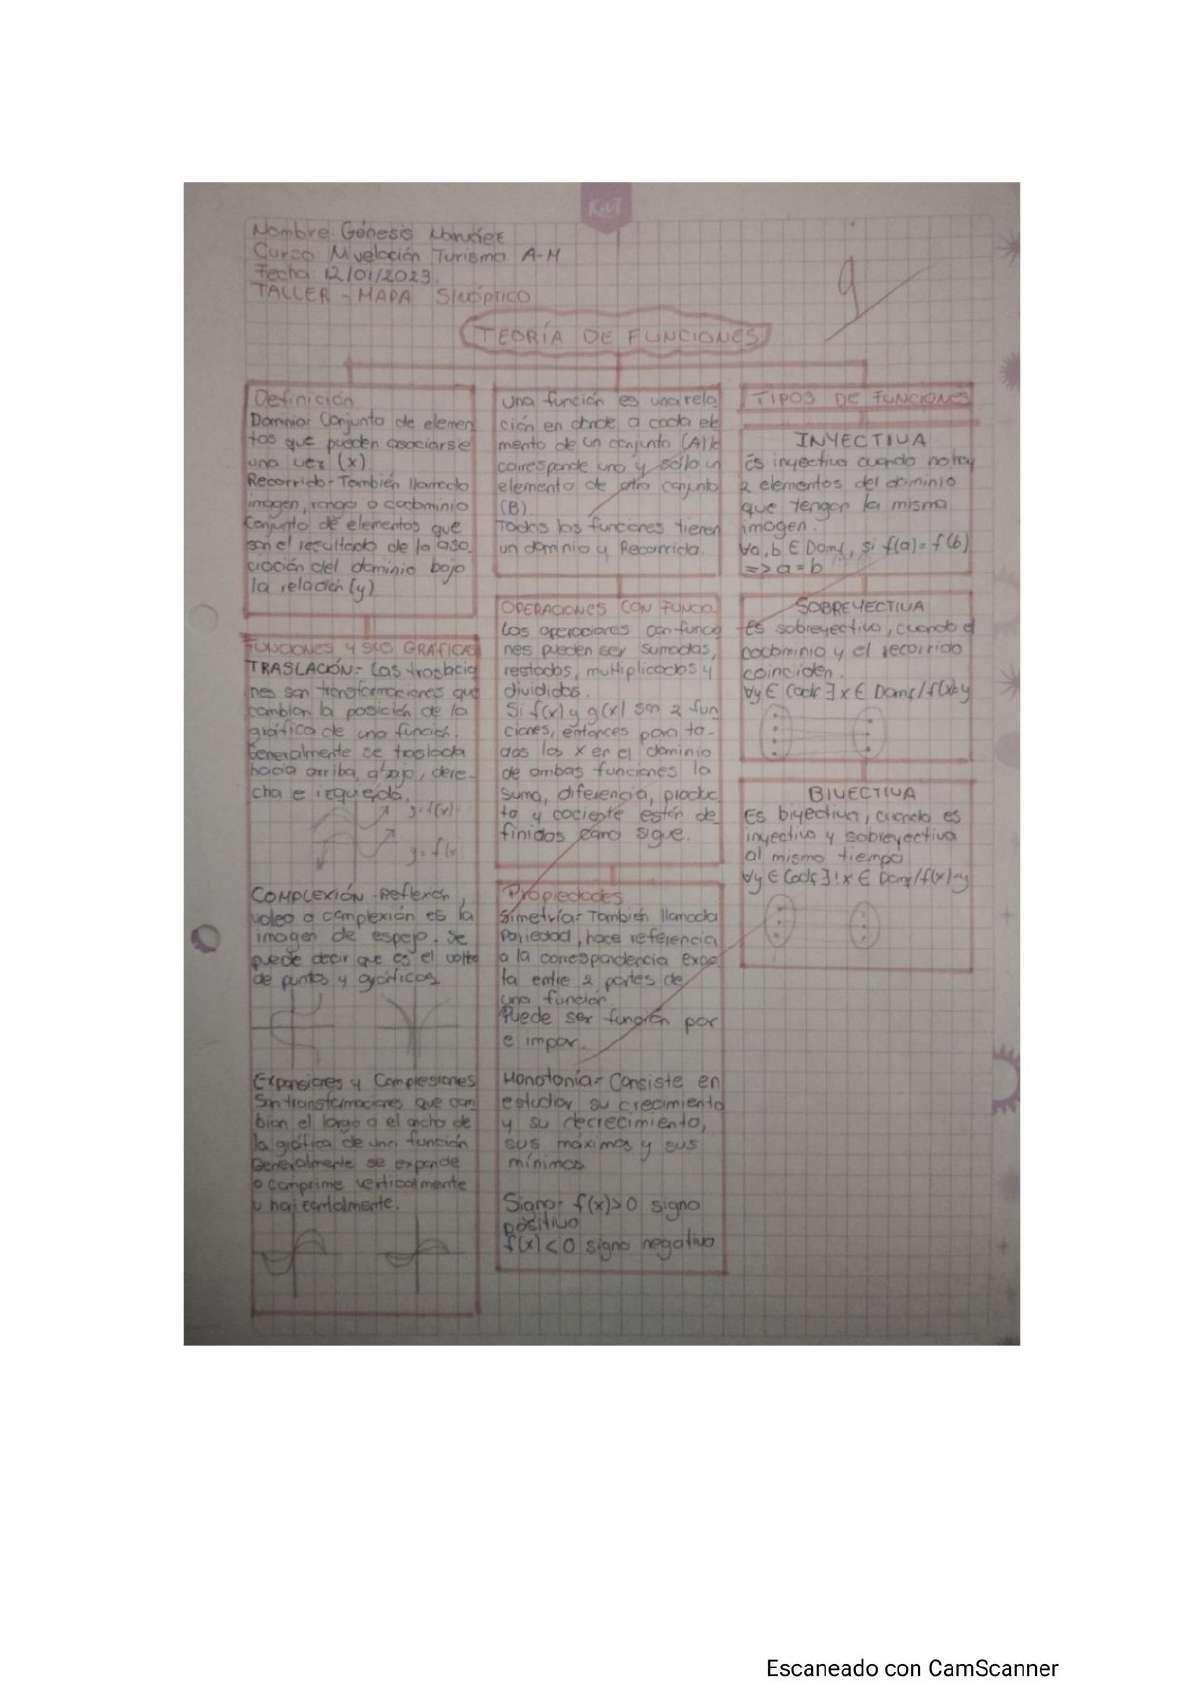 Nombre: Génesis
Curso Nivelación Turismo A-M
Fecha 12/01/2023.
TALLER - MAPA Sinóptico
9
TEORÍA DE FUNCIONES
Definición
Dominio: Conjunto de elemen
tos que pueden asociarse
una vez (x)
Recorrido- También llamado
imagen, rango o codominio
Conjunto de elementos que
son el resultado de la aso
ciación del dominio bajo
la relación (y)
FUNCIONES Y SUS GRÁFICAS
TRASLACIÓN:- Las traslacio
nes son transformaciones que
cambian la posición de la
gráfica de una función.
Generalmente se traslada
hacia arriba, abajo, dere-
cha e izquierda.
y=f(x)
y=f(x
COMPLEXIÓN - Reflexión,
volteo o complexión es la
imagen de espejo. Se
puede decir que es el volteo
de puntos y gráficos
Expansiones y Complesiones
Son transformaciones que cam
bian el largo o el ancho de
la gráfica de una función
Generalmente se expande
o comprime verticalmente
u horizontalmente.
una función es una rela
ción en donde a cada ele
mento de un conjunto (A) le
corresponde uno y sólo un
elemento de otro conjunto
(B).
Todas las funciones tienen
un dominio y Recorrido.
OPERACIONES CON FUNCIO.
Las operaciones con funcio
nes pueden ser sumadas,
restados, multiplicados y
divididos.
Si f(x) y g(x) son 2 fun
ciones, entonces para to-
das las x en el dominio
de ambas funciones la
suma, diferencia, produc
to y cociente están de
finidos como sigue.
Propiedades
Simetría- También llamada
Pariedad, hace referencia
a la correspondencia exac
ta entre 2 partes de
una función.
Puede ser función par
e impar.
Monotonía- Consiste en
estudiar su crecimiento
y su decrecimiento,
sus máximos y sus
mínimos
Signo- f(x)>0 signo
positivo
f(x)<0 signo negativo
TIPOS DE FUNCIONES
INYECTIVA
Es inyectiva cuando no hay
2 elementos del dominio
que tengan la misma
imagen.
∀a,b ∈ Domf, si f(a)=f(b)
=> a=b
SOBREYECTIVA
Es sobreyectiva, cuando el
codominio y el recorrido
coinciden.
∀y ∈ Codf ∃ x ∈ Domf/f(x)=y
BIYECTIVA
Es biyectiva, cuando es
inyectiva y sobreyectiva
al mismo tiempo
∀y ∈ Codf ∃! x ∈ Domf/f(x)=y
Escaneado con CamScanner